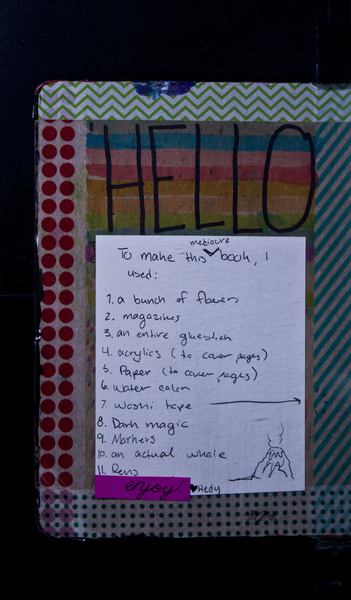 HELLO
mediocre
To make this book, I
used:
1. a bunch of flowers
2. magazines
3. an entire gluestick
4. acrylics (to cover pages)
5. Paper (to cover pages)
6. water color
7. washi tape
8. Dark magic
9. Markers
10. an actual whale
11. Pens
enjoy! ♥Hedy